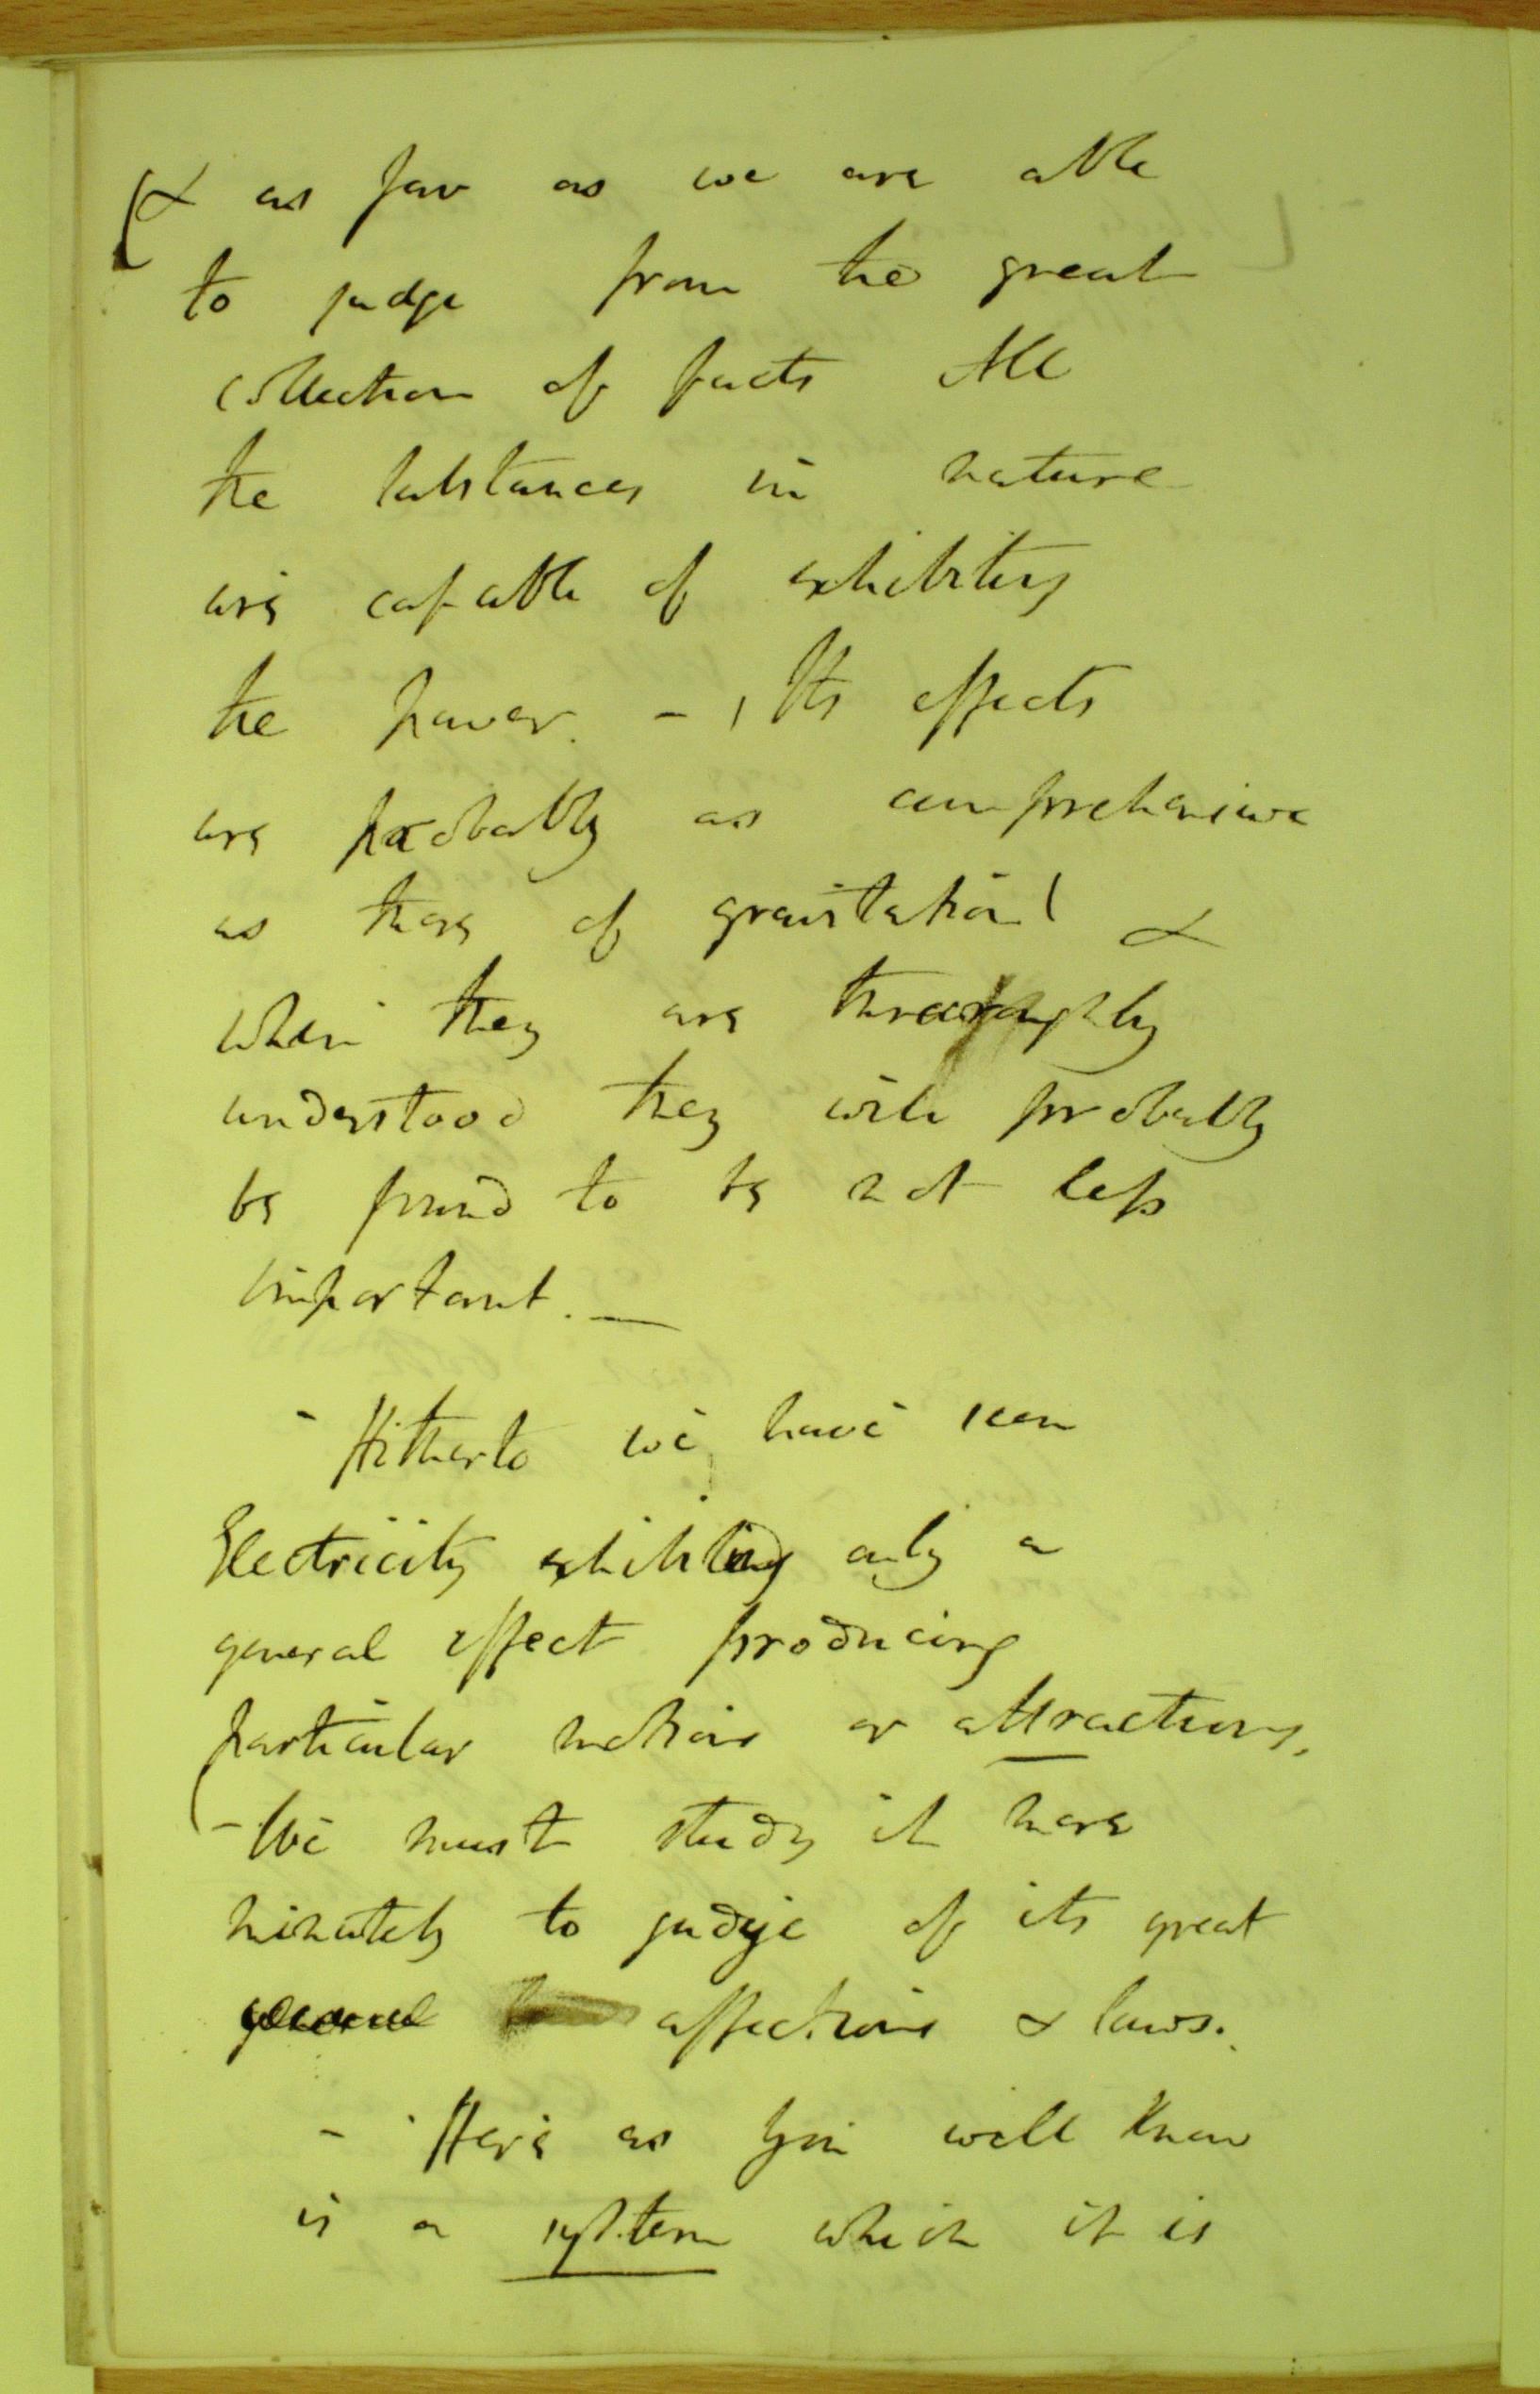 (& as far as we are able
to judge from the great
collection of facts All
the substances in nature
are capable of exhibiting
the power. - Its effects
are probably as comprehensive
as those of gravitation &
when they are thoroughly
understood they will probably
be found to be not less
important. —
- Hitherto we have seen
Electricity exhibiting only a
general effect producing
particular motions or attractions.
- We must study it more
minutely to judge of its great
general affections & laws.
- Here as you well know
is a system which it is